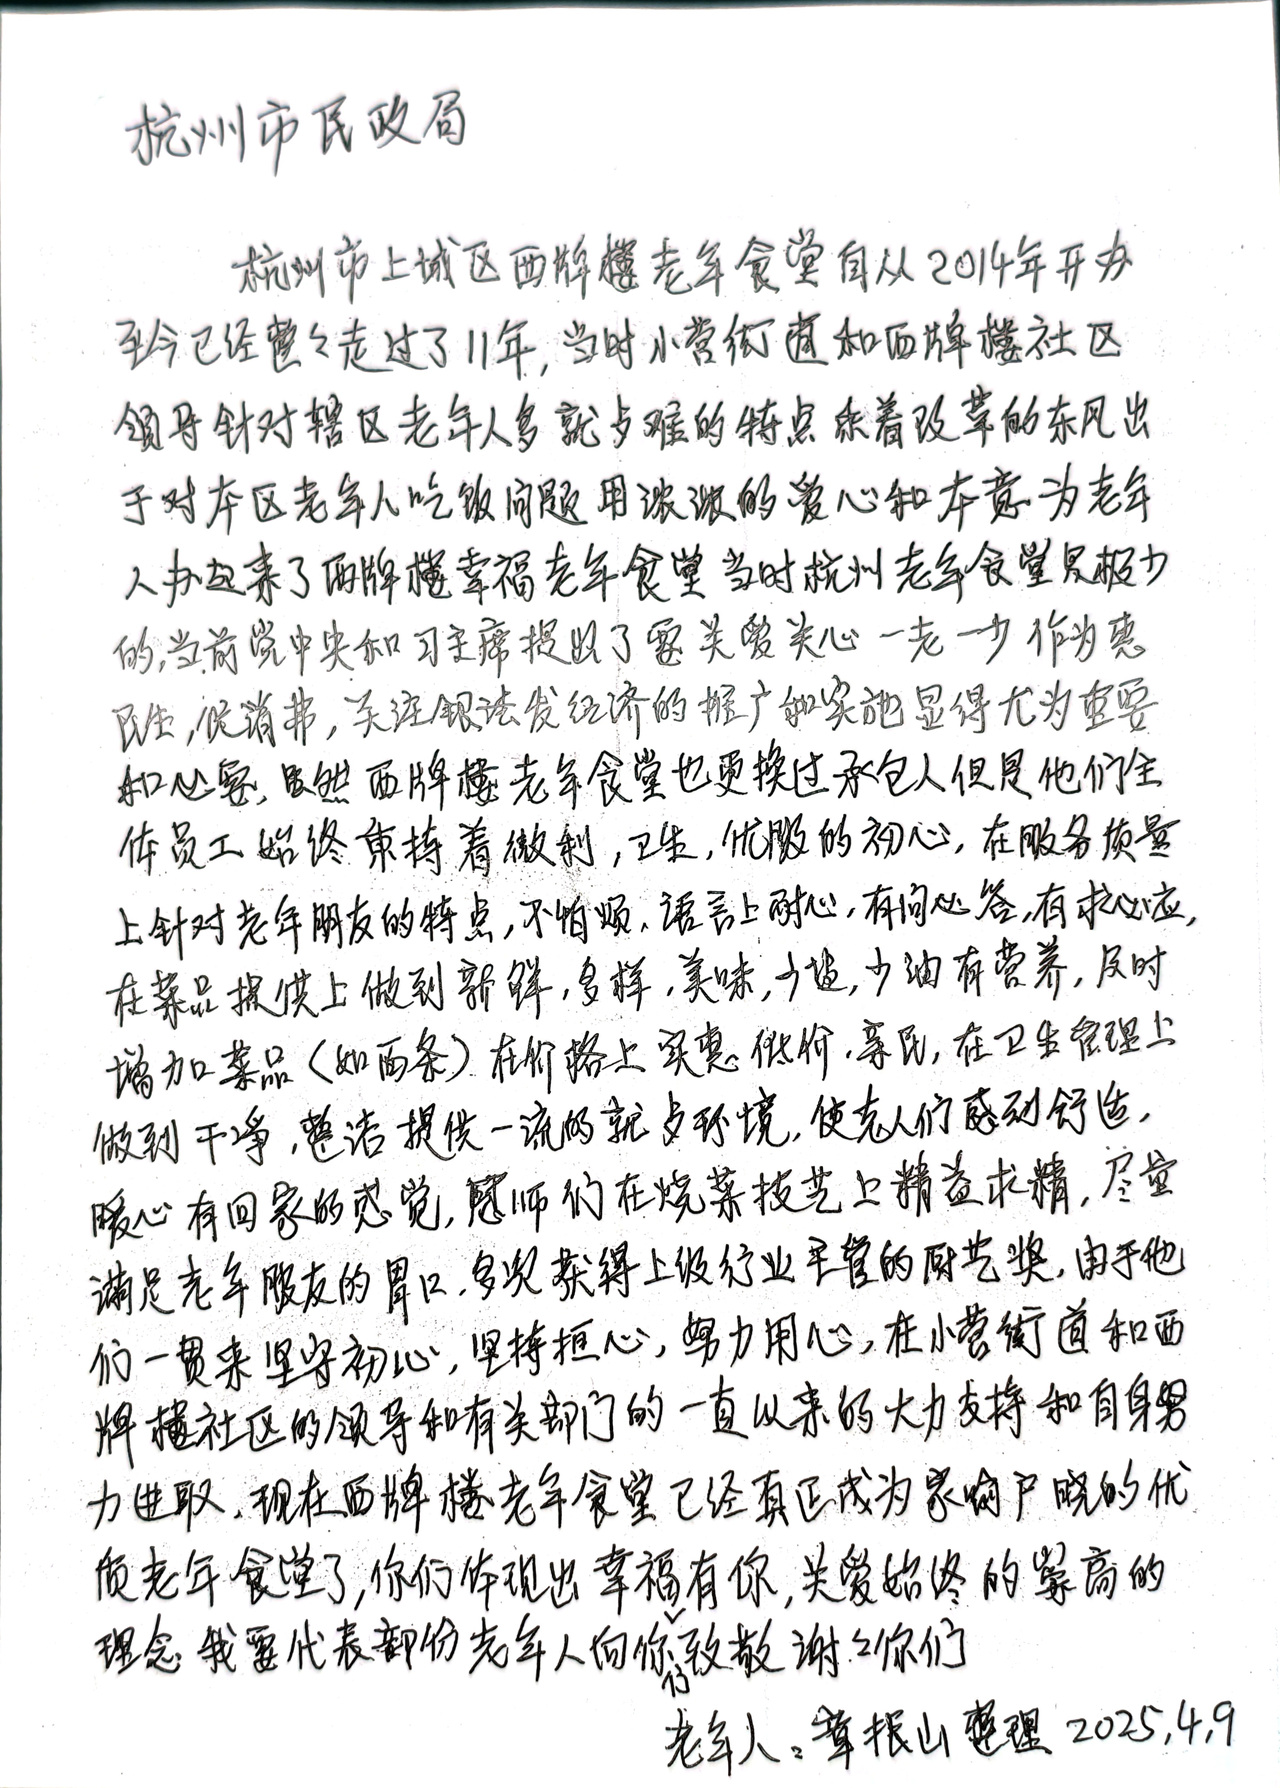 杭州市民政局
杭州市上城区西牌楼老年食堂自从2014年开办
至今已经整々走过了11年,当时小营街道和西牌楼社区
领导针对辖区老年人多就歺难的特点乘着改革的东风出
于对本区老年人吃饭问题用浓浓的爱心和本意为老年
人办起来了西牌楼幸福老年食堂当时杭州老年食堂是极少
的,当前党中央和习主席提出了要关爱关心一老一少作为惠
民生,促消费,关注银法发经济的推广和实施显得尤为重要
和心要,虽然西牌楼老年食堂也更换过承包人但是他们全
体员工始终秉持着微利,卫生,优服的初心,在服务质量
上针对老年朋友的特点,不怕烦,语言上耐心,有问心答,有求心应,
在菜品提供上做到新鲜,多样,美味,少盐,少油有营养,及时
增加菜品(如西条)在价格上实惠.低价.亲民,在卫生管理上
做到干净,整洁提供一流的就歺环境,使老人们感到舒适,
暖心有回家的感觉,厨师们在烧菜技艺上精益求精,尽量
满足老年朋友的胃口.多次获得上级行业主管的厨艺奖,由于他
们一贯来坚守初心,坚持担心,努力用心,在小营街道和西
牌楼社区的领导和有关部门的一直以来的大力支持和自身努
力进取,现在西牌楼老年食堂已经真正成为家喻户晓的优
质老年食堂了,你们体现出幸福有你,关爱始终的崇高的
理念.我要代表部份老年人向你们致敬谢々你们
老年人:章根山整理 2025,4,9